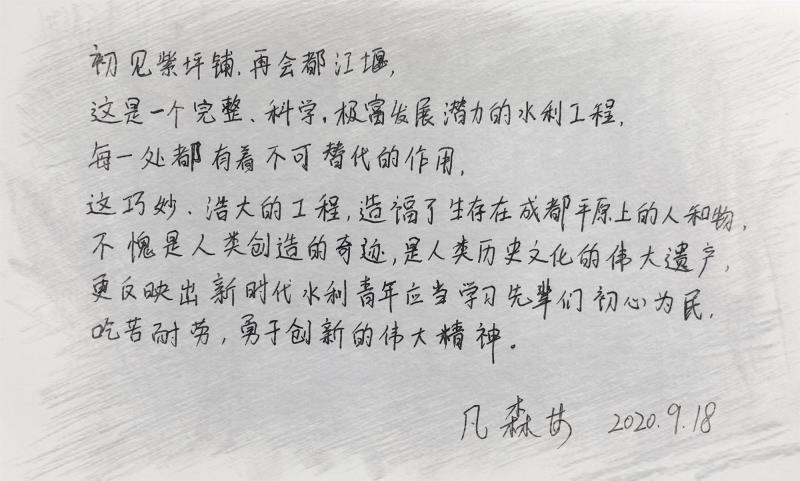 初见紫坪铺,再会都江堰,
这是一个完整、科学,极富发展潜力的水利工程,
每一处都有着不可替代的作用,
这巧妙、浩大的工程,造福了生存在成都平原上的人和物,
不愧是人类创造的奇迹,是人类历史文化的伟大遗产,
更反映出新时代水利青年应当学习先辈们初心为民,
吃苦耐劳,勇于创新的伟大精神。
凡森 2020.9.18